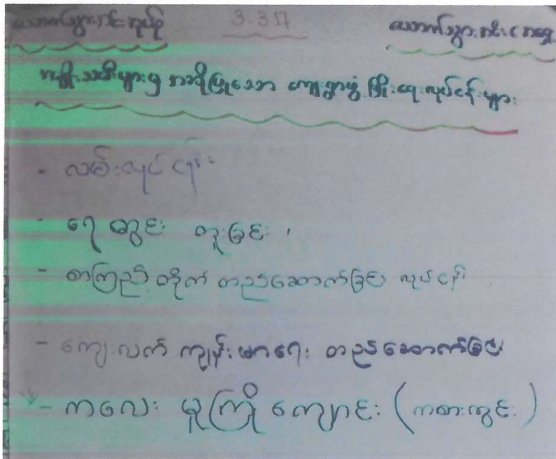 ယောက်သွားအင်းအုပ်စု 3.3.17 ယောက်သွားအင်းရွာ
အမျိုးသမီးများမှ အဆိုပြုသော ကျေးရွာဖွံ့ဖြိုးရေးလုပ်ငန်းများ
- လမ်းလုပ်ငန်း
- ရေတွင်း တူးခြင်း ၊
- စာကြည့်တိုက် တည်ဆောက်ခြင်း လုပ်ငန်း
- ကျေးလက် ကျန်းမာရေး တည်ဆောက်ခြင်း
- ကလေး မူကြို ကျောင်း (ကစားကွင်း)